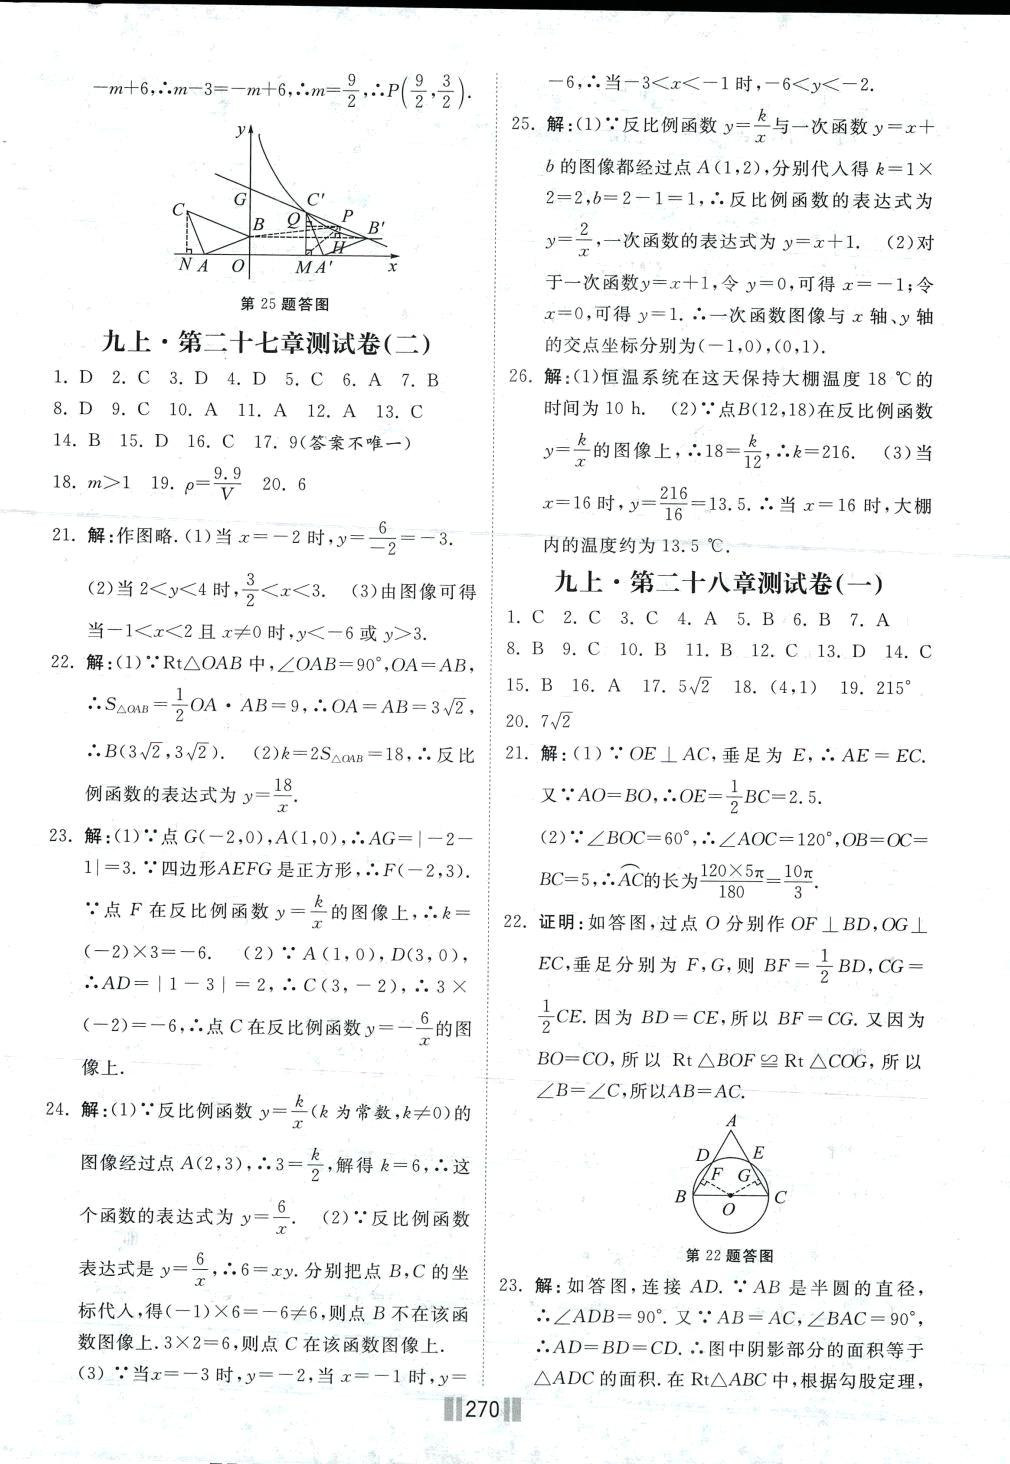 −m+6,∴m−3=−m+6,∴m=9/2,∴P(9/2,3/2).
y
G
C′
C
Q
P
B
B′
H
N A O M A′ x
第 25 题答图
九上·第二十七章测试卷(二)
1. D 2. C 3. D 4. D 5. C 6. A 7. B
8. D 9. C 10. A 11. A 12. A 13. C
14. B 15. D 16. C 17. 9(答案不唯一)
18. m>1 19. ρ=9.9/V 20. 6
21. 解:作图略.(1)当 x=−2 时,y=6/−2=−3.
(2)当 2<y<4 时,3/2<x<3. (3)由图像可得
当−1<x<2 且 x≠0 时,y<−6 或 y>3.
22. 解:(1)∵Rt△OAB 中,∠OAB=90°,OA=AB,
∴S△OAB=1/2OA·AB=9,∴OA=AB=3√2,
∴B(3√2,3√2). (2)k=2S△OAB=18,∴反比
例函数的表达式为 y=18/x.
23. 解:(1)∵点 G(−2,0),A(1,0),∴AG=|−2−
1|=3.∵四边形AEFG 是正方形,∴F(−2,3).
∵点 F 在反比例函数 y=k/x的图像上,∴k=
(−2)×3=−6. (2)∵A(1,0),D(3,0),
∴AD=|1−3|=2,∴C(3,−2),∴3×
(−2)=−6,∴点 C 在反比例函数 y=−6/x的图
像上.
24. 解:(1)∵反比例函数 y=k/x(k 为常数,k≠0)的
图像经过点 A(2,3),∴3=k/2,解得 k=6,∴这
个函数的表达式为 y=6/x. (2)∵反比例函数
表达式是 y=6/x,∴6=xy.分别把点 B,C 的坐
标代入,得(−1)×6=−6≠6,则点 B 不在该函
数图像上.3×2=6,则点 C 在该函数图像上.
(3)∵当x=−3 时,y=−2,当 x=−1 时,y=
−6,∴当−3<x<−1 时,−6<y<−2.
25. 解:(1)∵反比例函数 y=k/x与一次函数 y=x+
b 的图像都经过点 A(1,2),分别代入得 k=1×
2=2,b=2−1=1,∴反比例函数的表达式为
y=2/x,一次函数的表达式为 y=x+1. (2)对
于一次函数y=x+1,令 y=0,可得 x=−1;令
x=0,可得 y=1.∴一次函数图像与 x 轴、y 轴
的交点坐标分别为(−1,0),(0,1).
26. 解:(1)恒温系统在这天保持大棚温度 18 ℃的
时间为 10 h. (2)∵点B(12,18)在反比例函数
y=k/x的图像上,∴18=k/12,∴k=216. (3)当
x=16 时,y=216/16=13.5.∴当 x=16 时,大棚
内的温度约为 13.5 ℃.
九上·第二十八章测试卷(一)
1. C 2. C 3. C 4. A 5. B 6. B 7. A
8. B 9. C 10. B 11. B 12. C 13. D 14. C
15. B 16. A 17. 5√2 18. (4,1) 19. 215°
20. 7√2
21. 解:(1)∵OE⊥AC,垂足为 E,∴AE=EC.
又∵AO=BO,∴OE=1/2BC=2.5.
(2)∵∠BOC=60°,∴∠AOC=120°,OB=OC=
BC=5,∴A͡C的长为120×5π/180=10π/3.
22. 证明:如答图,过点 O 分别作 OF⊥BD,OG⊥
EC,垂足分别为 F,G,则 BF=1/2BD,CG=
1/2CE.因为 BD=CE,所以 BF=CG.又因为
BO=CO,所以 Rt△BOF≌Rt△COG,所以
∠B=∠C,所以AB=AC.
A
D E
F G
B C
O
第 22 题答图
23. 解:如答图,连接 AD.∵AB 是半圆的直径,
∴∠ADB=90°.又∵AB=AC,∠BAC=90°,
∴AD=BD=CD.∴图中阴影部分的面积等于
△ADC 的面积.在 Rt△ABC 中,根据勾股定理,
270